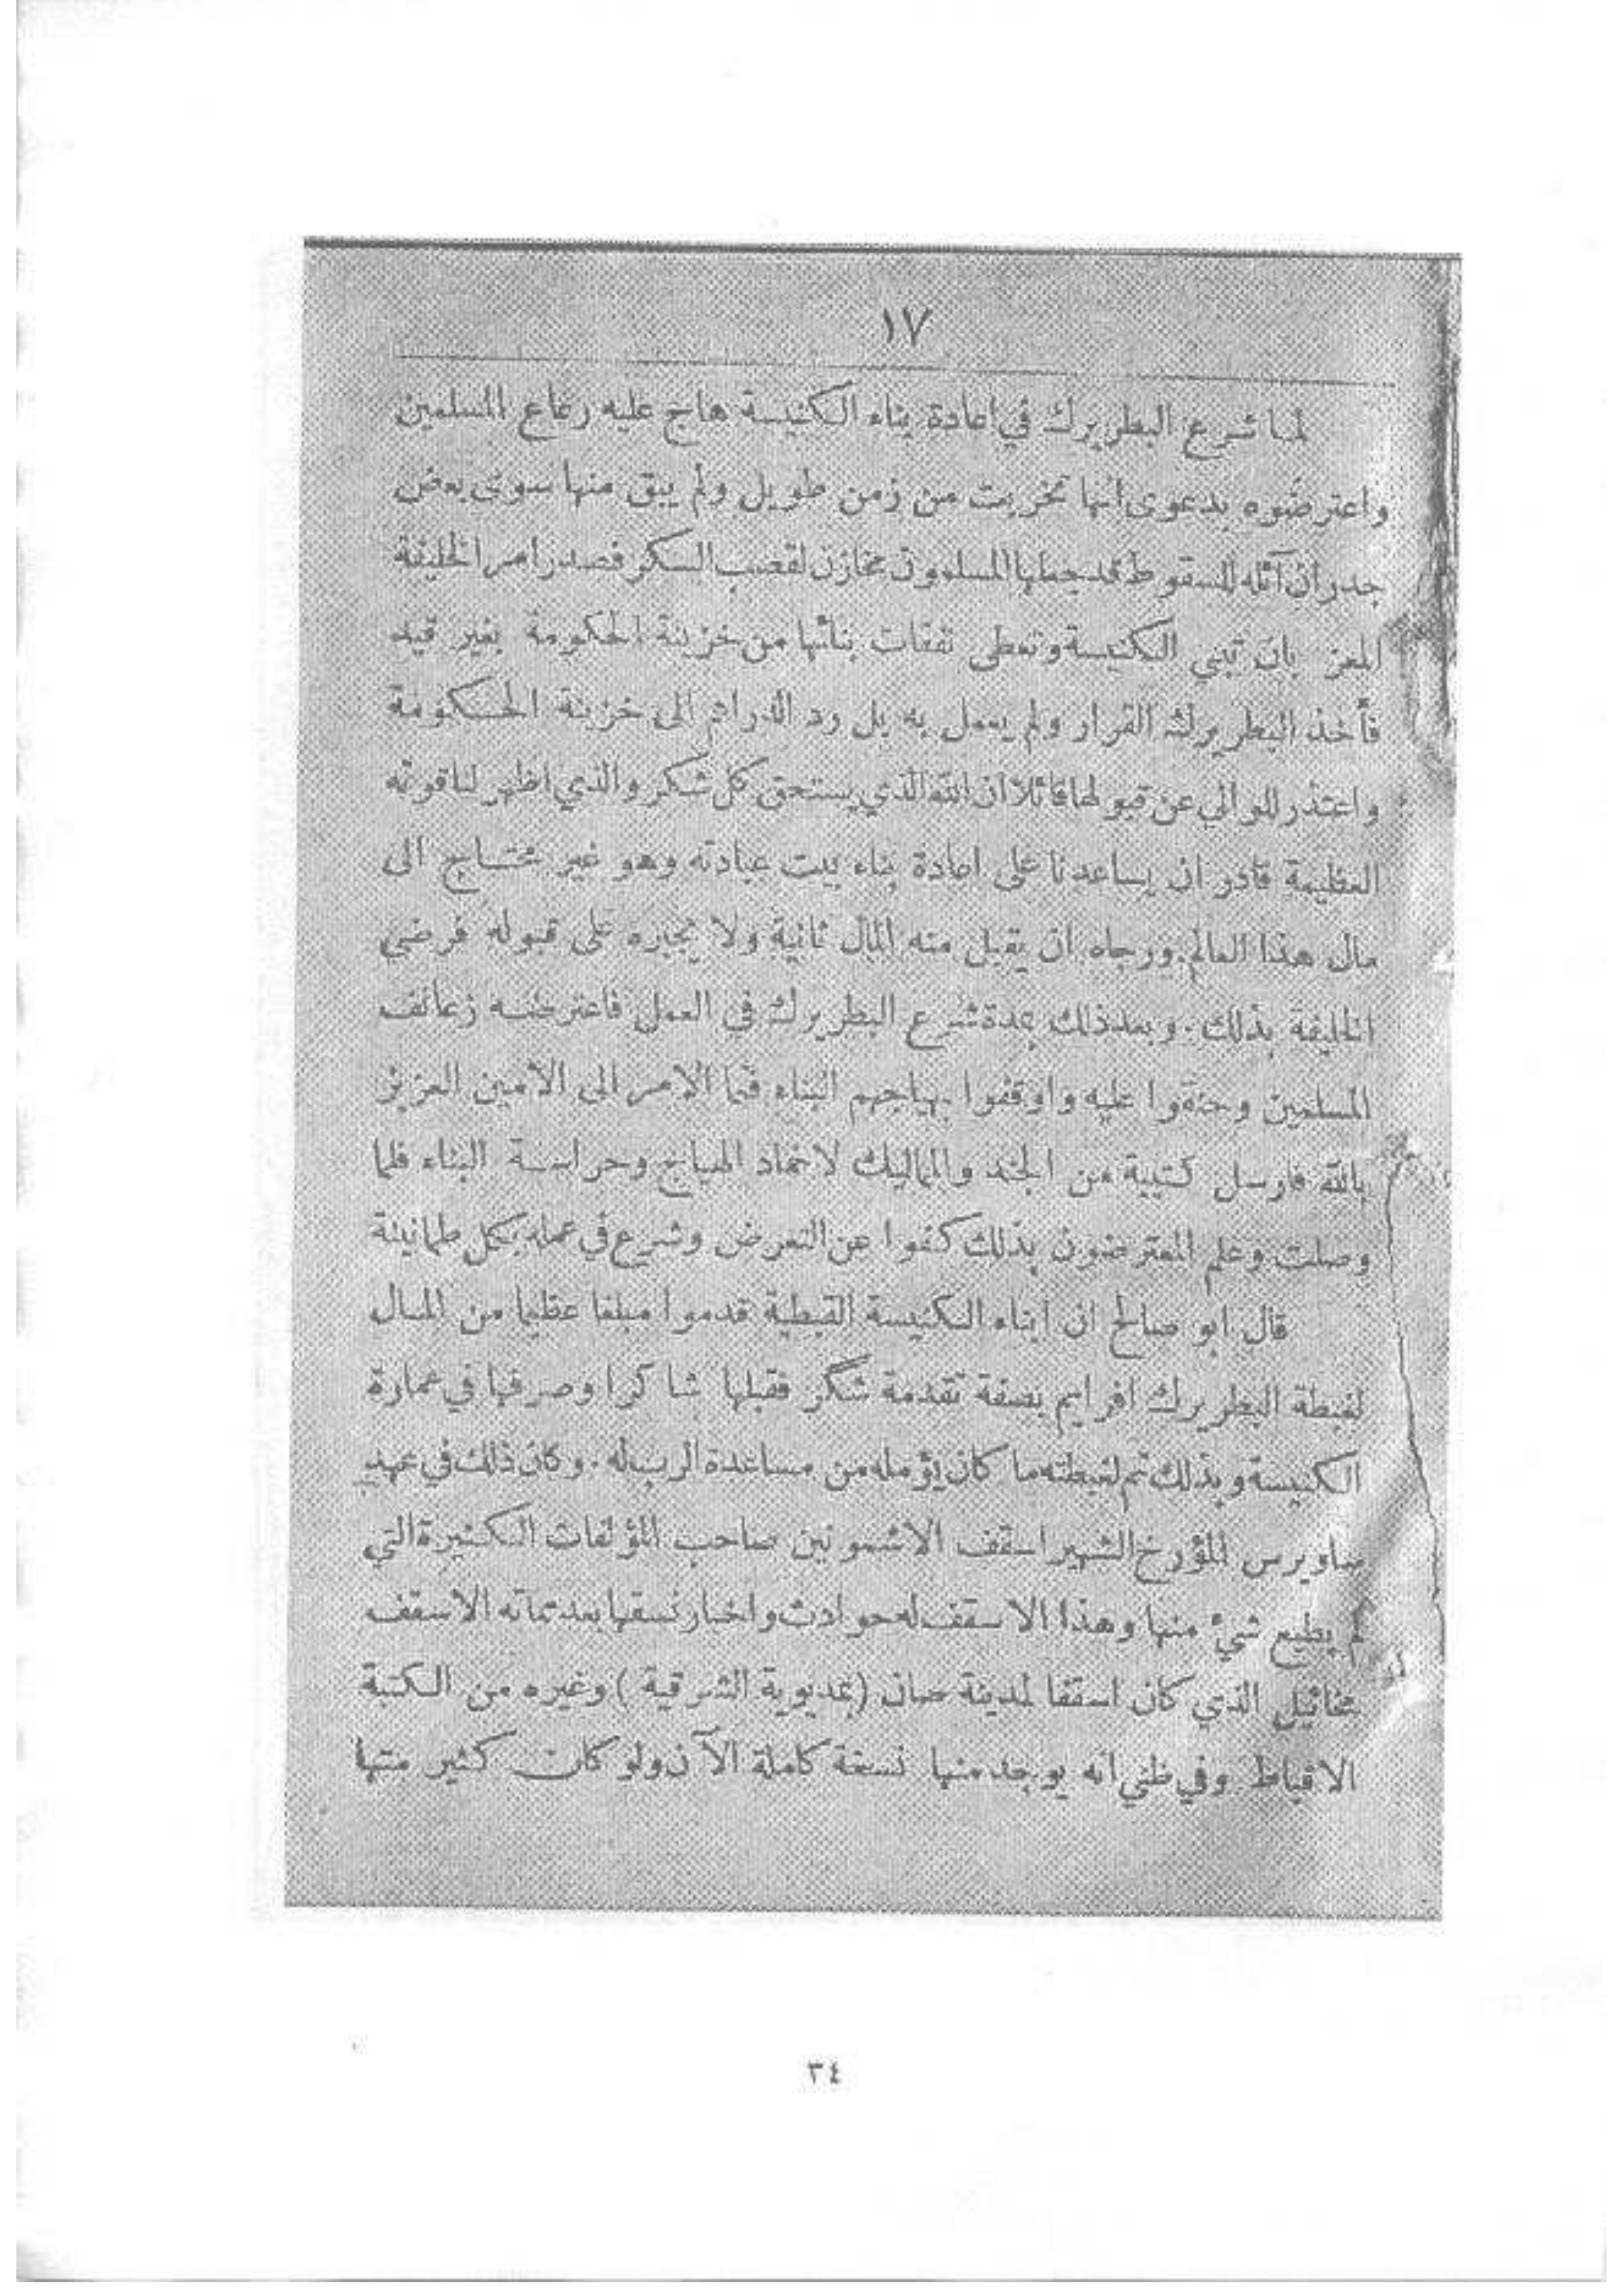 ١٧
لما شرع البطريرك في اعادة بناء الكنيسة هاج عليه رعاع المسلمين
واعترضوه بدعوى انها تخربت من زمن طويل ولم يبق منها سوى بعض
جدران آئله للسقوط قد جعلها المسلمون مخازن لقصب السكر فصدر امر الخليفة
المعز بان تبنى الكنيسة وتعطى نفقات بنائها من خزينة الحكومة بغير قيد
فأخذ البطريرك القرار ولم يعمل به بل رد الدراهم الى خزينة الحكومة
واعتذر للوالي عن قبولها قائلا ان الله الذي يستحق كل شكر والذي اظهر لنا قوته
العظيمة قادر ان يساعدنا على اعادة بناء بيت عبادته وهو غير محتاج الى
مال هذا العالم ورجاه ان يقبل منه المال ثانية ولا يجبره على قبوله فرضي
الخليفة بذلك . وبعد ذلك بمدة شرع البطريرك في العمل فاعترضه زعانف
المسلمين وحنقوا عليه واوقفوا بهياجهم البناء فنما الامر الى الامين العزيز
بالله فارسل كتيبة من الجند والمماليك لاخماد الهياج وحراسة البناء فلما
وصلت وعلم المعترضون بذلك كفوا عن التعرض وشرع في عمله بكل طمانينة
قال ابو صالح ان ابناء الكنيسة القبطية قدموا مبلغا عظيما من المال
لغبطة البطريرك افرايم بصفة تقدمة شكر فقبلها شاكرا وصرفها في عمارة
الكنيسة وبذلك تم لغبطته ما كان يؤمله من مساعدة الرب له . وكان ذلك في عهد
ساويرس المؤرخ الشهير اسقف الاشمونين صاحب المؤلفات الكثيرة التي
لم يطبع شيء منها وهذا الاسقف له حوادث واخبار نسقها بعد مماته الاسقف
مخائيل الذي كان اسقفا لمدينة صان (بمديرية الشرقية) وغيره من الكتبة
الاقباط وفي ظني انه يوجد منها نسخة كاملة الآن ولو كان كثير منها
٣٤